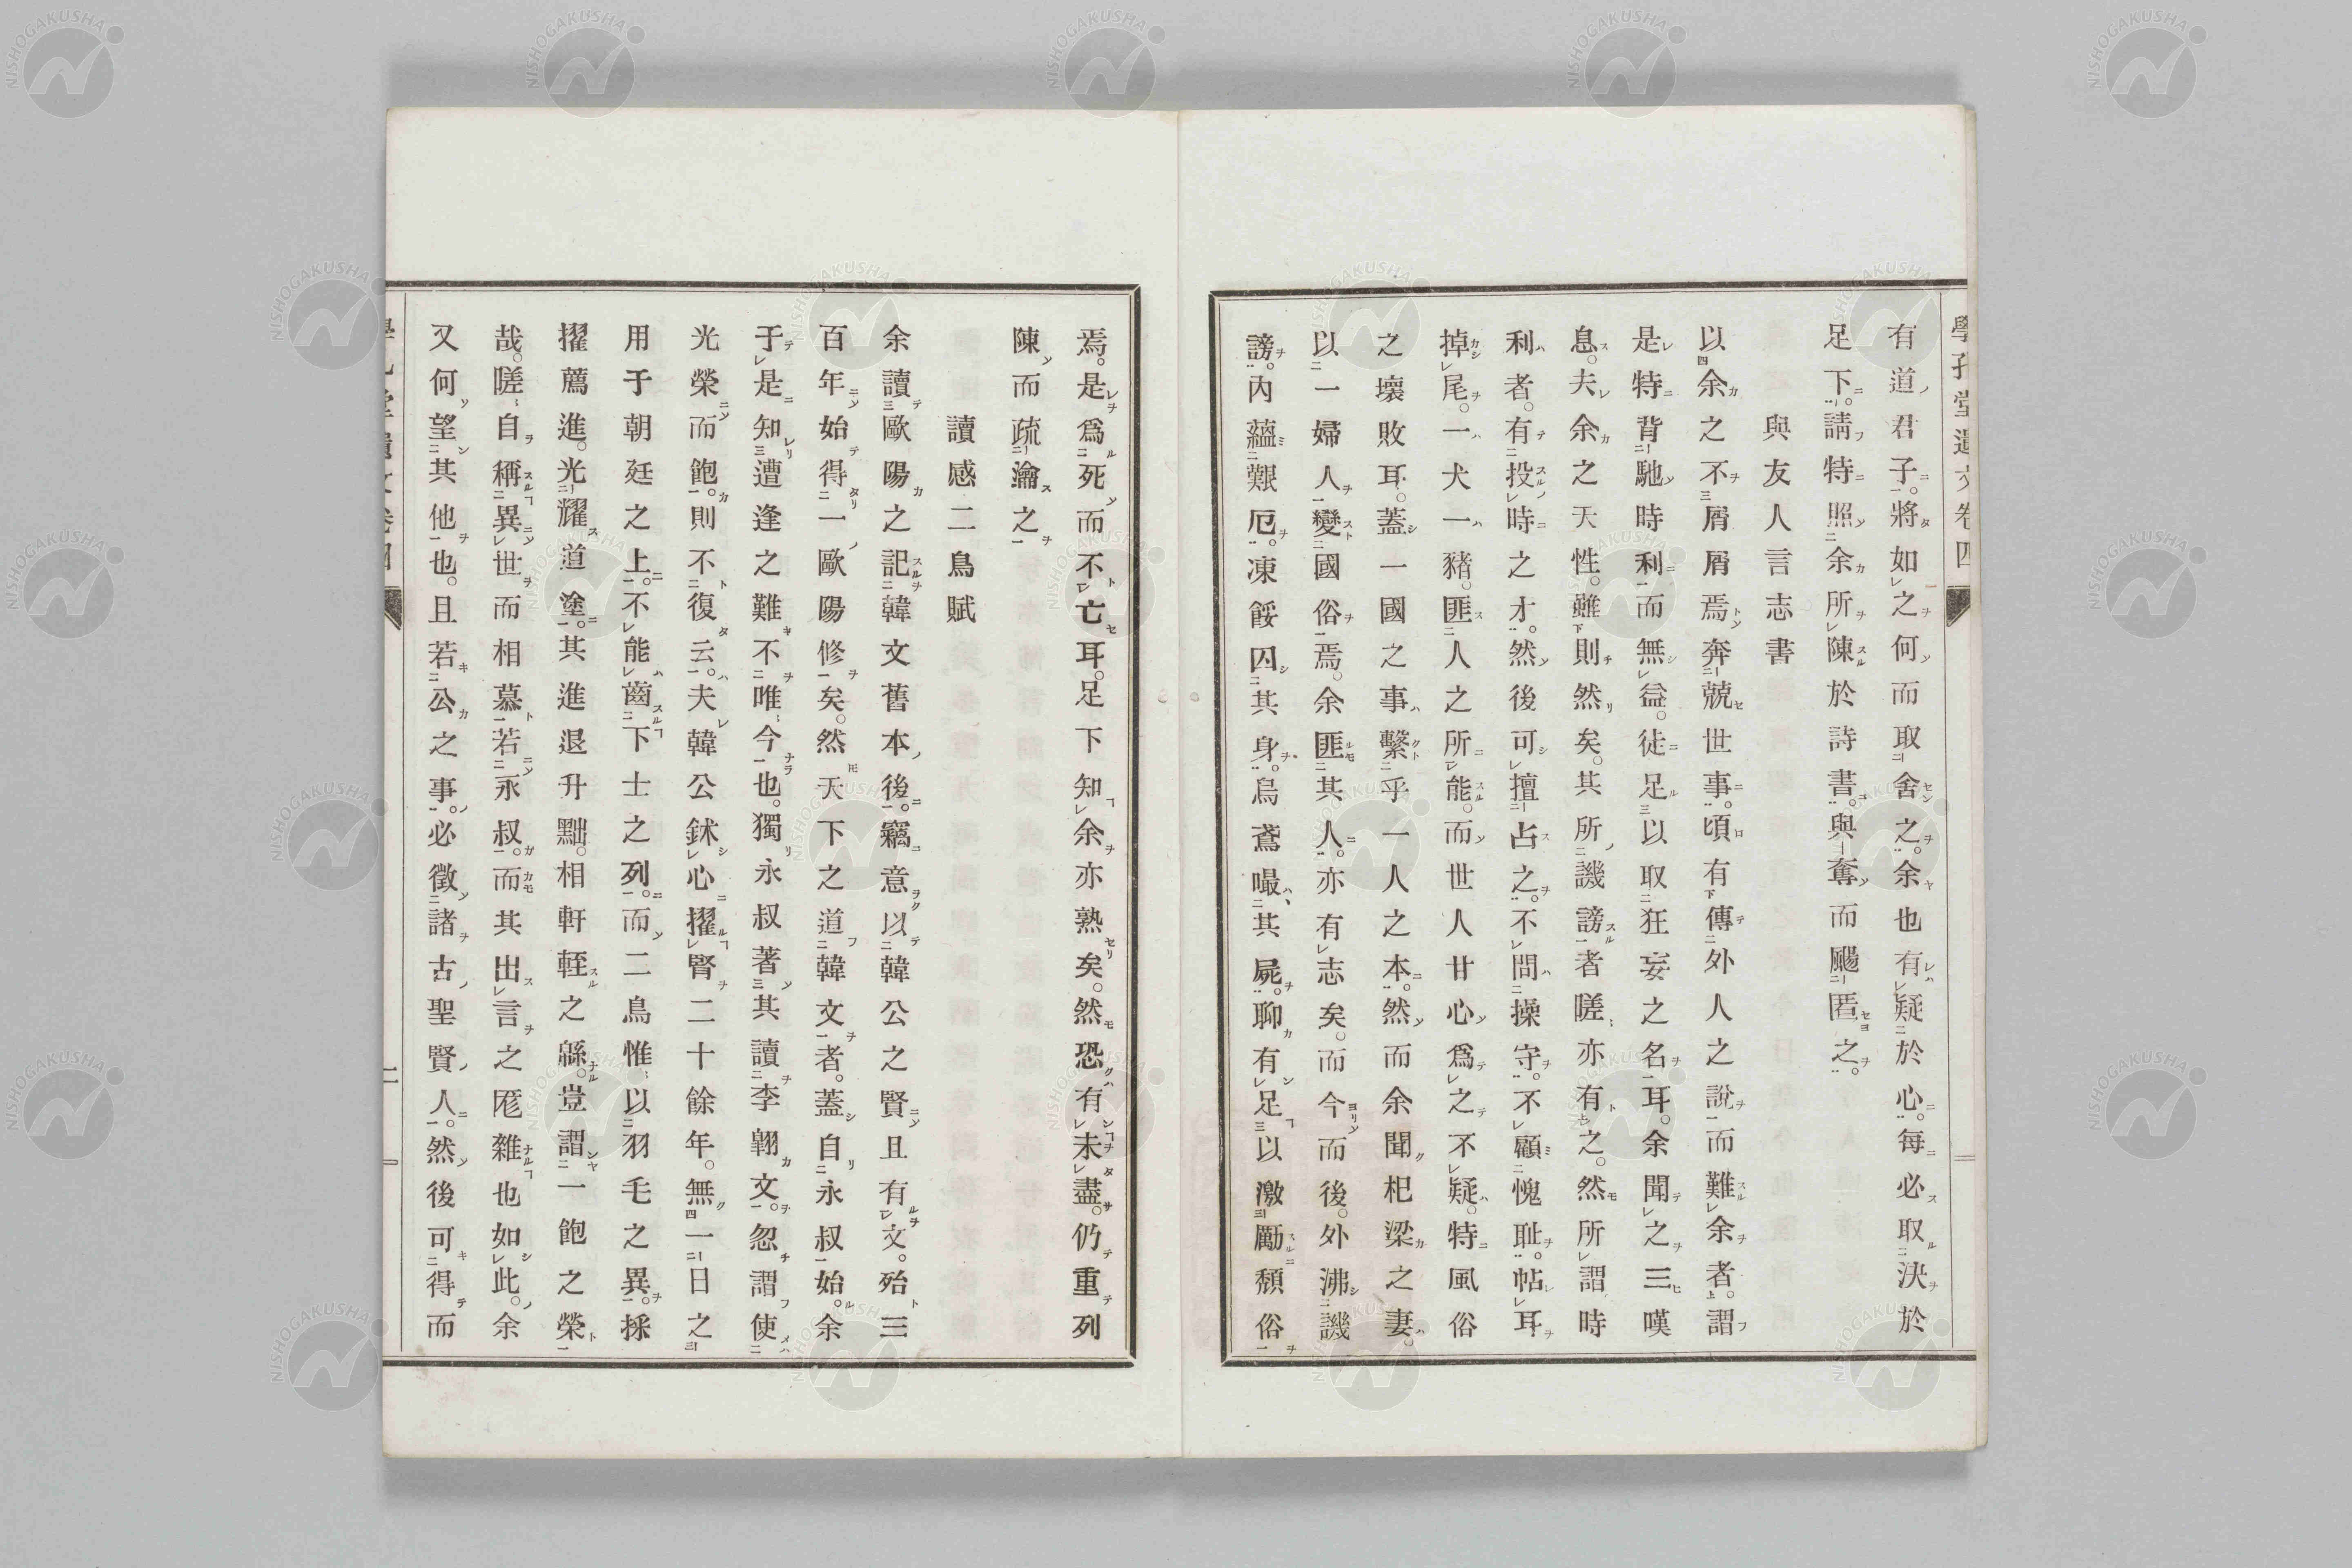 學孔堂遺文卷四
有道君子。將如之何而取舍之。余也有疑於心。每必取決於
足下。請特照余所陳於詩書。與奪而颺匿之。
與友人言志書
以余之不屑屑焉奔兢世事。頃有傳外人之說而難余者。謂
是特背馳時利而無益。徒足以取狂妄之名耳。余聞之三嘆
息。夫余之天性。雖則然矣。其所譏謗者嗟亦有之。然所謂時
利者。有投時之才。然後可擅占之。不問操守。不顧愧耻。帖耳
掉尾。一犬一豬。匪人之所能。而世人甘心爲之不疑。特風俗
之壞敗耳。蓋一國之事繫乎一人之本。然而余聞杞梁之妻。
以一婦人變國俗焉。余匪其人。亦有志矣。而今而後。外沸譏
謗。內蘊艱厄。凍餒囚其身。烏鳶嘬其屍。聊有足以激勵頹俗
焉。是爲死而不亡耳。足下知余亦熟矣。然恐有未盡。仍重列
陳而疏瀹之
讀感二鳥賦
余讀歐陽之記韓文舊本後。竊意以韓公之賢且有文。殆三
百年始得一歐陽修矣。然天下之道韓文者。蓋自永叔始。余
于是知遭逢之難不唯今也。獨永叔著其讀李翺文。忽謂使
光榮而飽。則不復云。夫韓公鉥心擢腎二十餘年。無一日之
用于朝廷之上。不能齒下士之列。而二鳥惟以羽毛之異。採
擢薦進。光耀道塗。其進退升黜。相軒輊之緜。豈謂一飽之榮
哉。嗟自稱異世而相慕若永叔。而其出言之厖雜也如此。余
又何望其他也。且若公之事。必徵諸古聖賢人。然後可得而